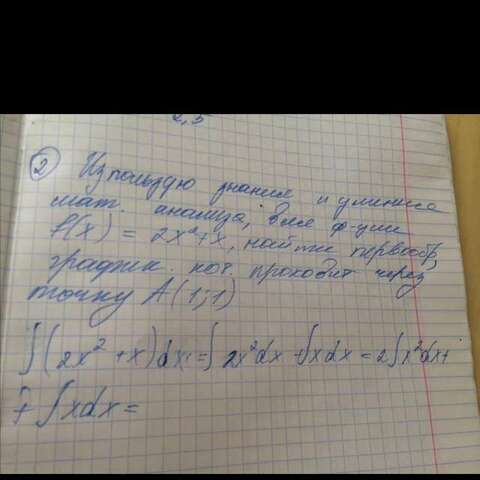 2,5
② Използдю знания и умения
мат. анализа, для ф-ции
f(x) = 2x²+x, найти первообр,
график. кот. проходит через
точку A(1;1)
∫(2x² +x)dx = ∫2x²dx+∫xdx = 2∫x²dx+
+ ∫xdx =